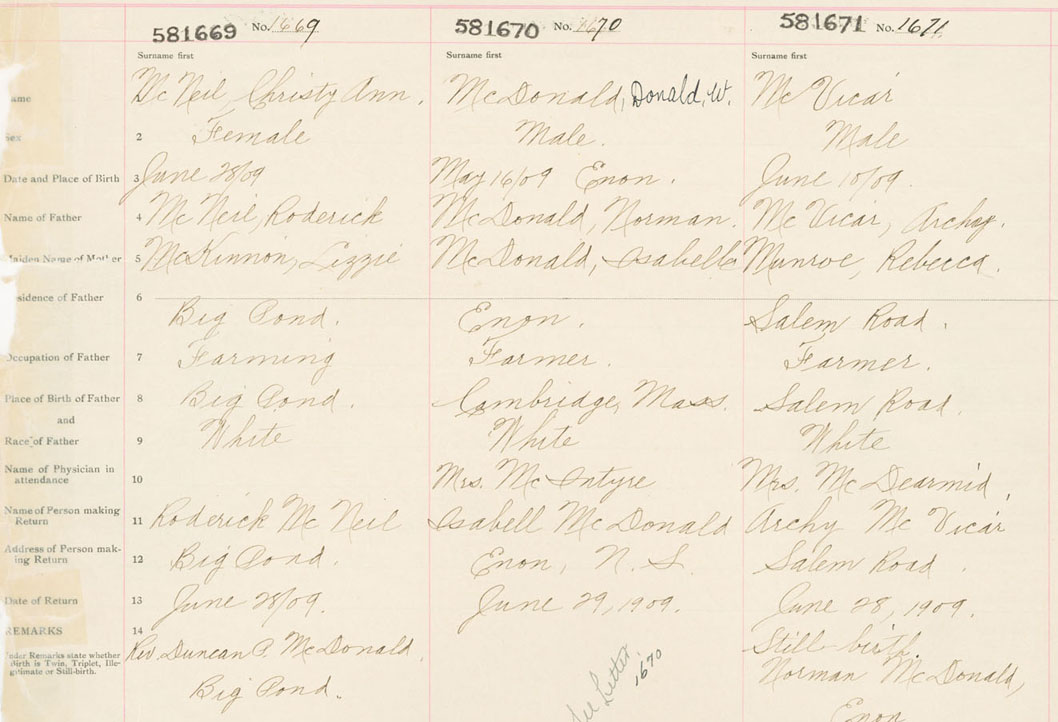 581669 No. 1669 581670 No. 1670 581671 No. 1671
Surname first Surname first Surname first
ame Mc Neil, Christy Ann. McDonald, Donald, W. Mc Vicar
Sex 2 Female Male. Male
Date and Place of Birth 3 June 28/09 May 16/09 Enon. June 10/09.
Name of Father 4 Mc Neil, Roderick McDonald, Norman. Mc Vicar, Archy.
Maiden Name of Mother 5 McKinnon, Lizzie McDonald, Isabelle Munroe, Rebecca.
sidence of Father 6 Big Pond. Enon. Salem Road.
Occupation of Father 7 Farming Farmer. Farmer.
Place of Birth of Father 8 Big Pond. Cambridge, Mass. Salem Road.
and
Race of Father 9 White White White
Name of Physician in
attendance 10 Mrs. McIntyre Mrs. McDearmid,
Name of Person making
Return 11 Roderick Mc Neil Isabell McDonald Archy Mc Vicar
Address of Person mak-
ing Return 12 Big Pond. Enon, N. S. Salem Road
Date of Return 13 June 28/09. June 29, 1909. June 28, 1909.
REMARKS 14 Still-birth.
Under Remarks state whether
Birth is Twin, Triplet, Ille-
gitimate or Still-birth.
Rev. Duncan P. McDonald. Norman McDonald,
Big Pond. See Letter 1670 Enon